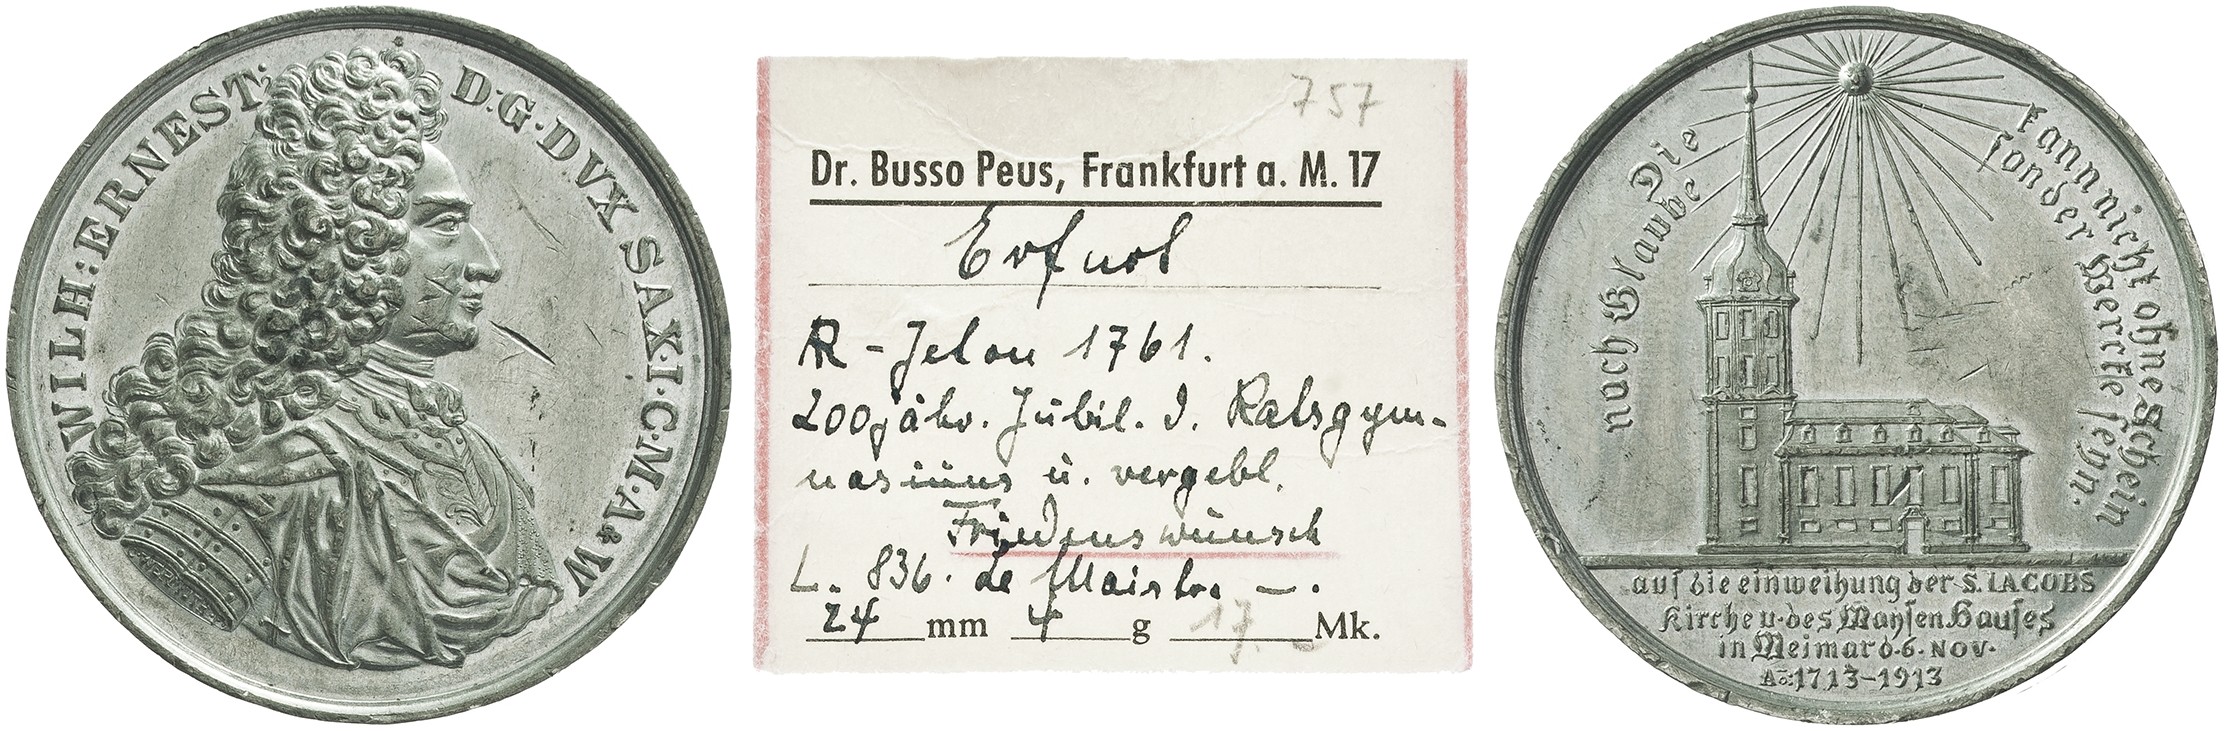 WILH: ERNEST: D:G·DVX SAX·I·C·M·A&W
WERM
757
Dr. Busso Peus, Frankfurt a. M. 17
Erfurt
R - Jeton 1761.
200jähr. Jubil. d. Ratsgym-
nasiums u. vergebl.
Friedenswunsch
L. 836. de Maistre —.
24 mm 4 g 17.- Mk.
Die
nach Glaube
kann nicht ohne Schein
sonder Wercke seyn.
auf die einweihung der S. IACOBS
Kirche u. des Waysen Hauses
in Weimar d. 6. NOV.
Aō: 1713-1913